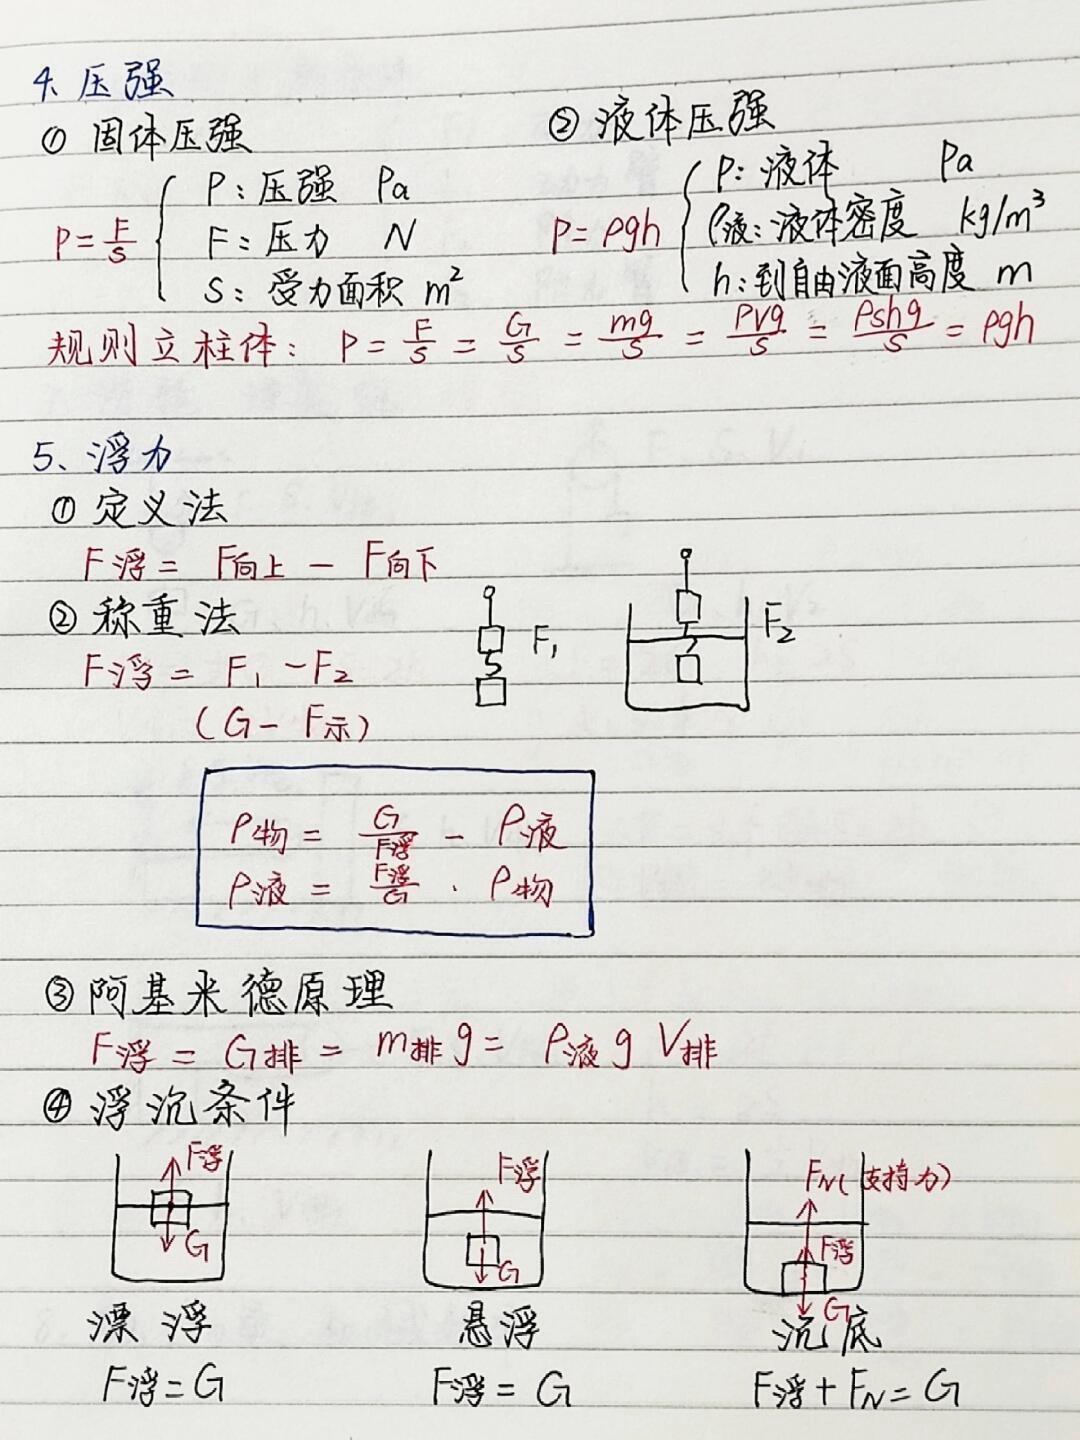 4、压强
① 固体压强
P=F/S { P：压强 Pa
F：压力 N
S：受力面积 m²
② 液体压强
P=ρgh { P：液体 Pa
ρ液：液体密度 kg/m³
h：到自由液面高度 m
规则立柱体：P=F/S=G/S=mg/S=ρvg/S=ρshg/S=ρgh
5、浮力
① 定义法
F浮=F向上-F向下
② 称重法
F浮=F₁-F₂
(G-F示)
F₁
F₂
ρ物=G/F浮-ρ液
ρ液=F浮/G·ρ物
③ 阿基米德原理
F浮=G排=m排g=ρ液gV排
④ 浮沉条件
F浮
G
漂浮
F浮=G
F浮
G
悬浮
F浮=G
FN(支持力)
F浮
G
沉底
F浮+FN=G